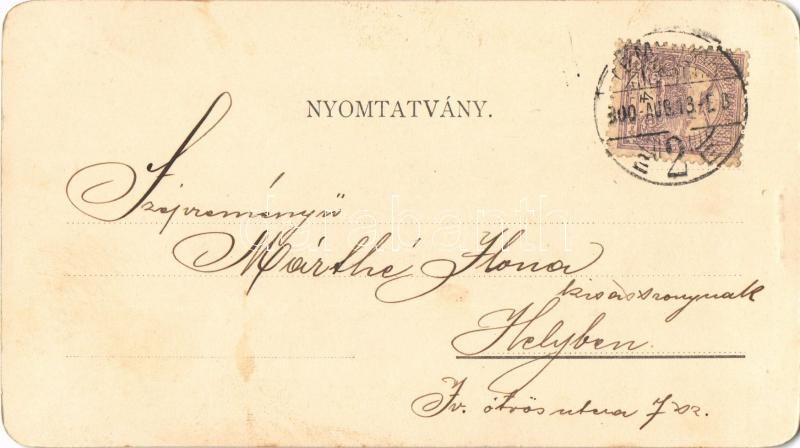 NYOMTATVÁNY.
900 AUG. 13
2
Szépreményű
Márthé Ilona
kisasszonynak
Helyben.
Iv. ötvös utca 7 sz.
darabanth